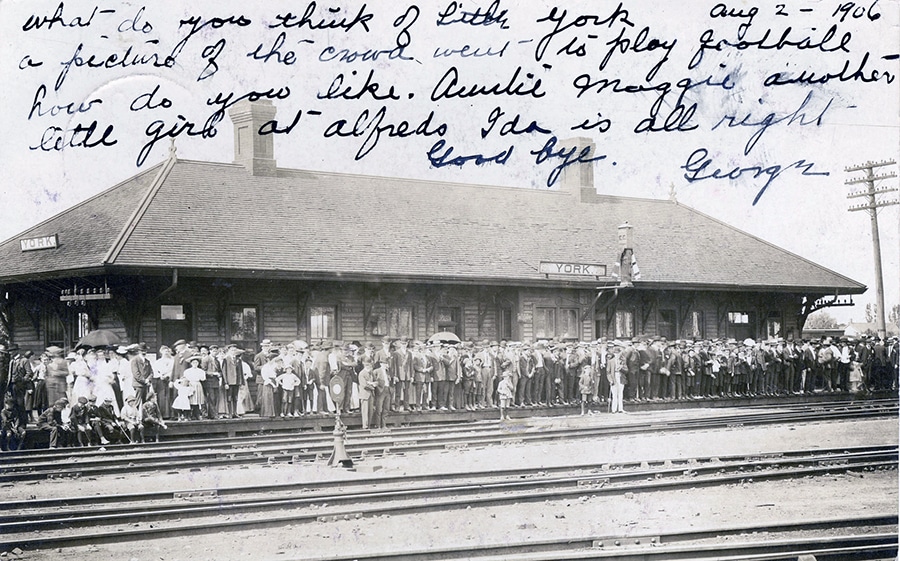 what do you think of Little York Aug 2 - 1906
a picture of the crowd went to play football
how do you like. Auntie Maggie another
little girl at alfreds Ida is all right
Good bye. George
YORK
YORK